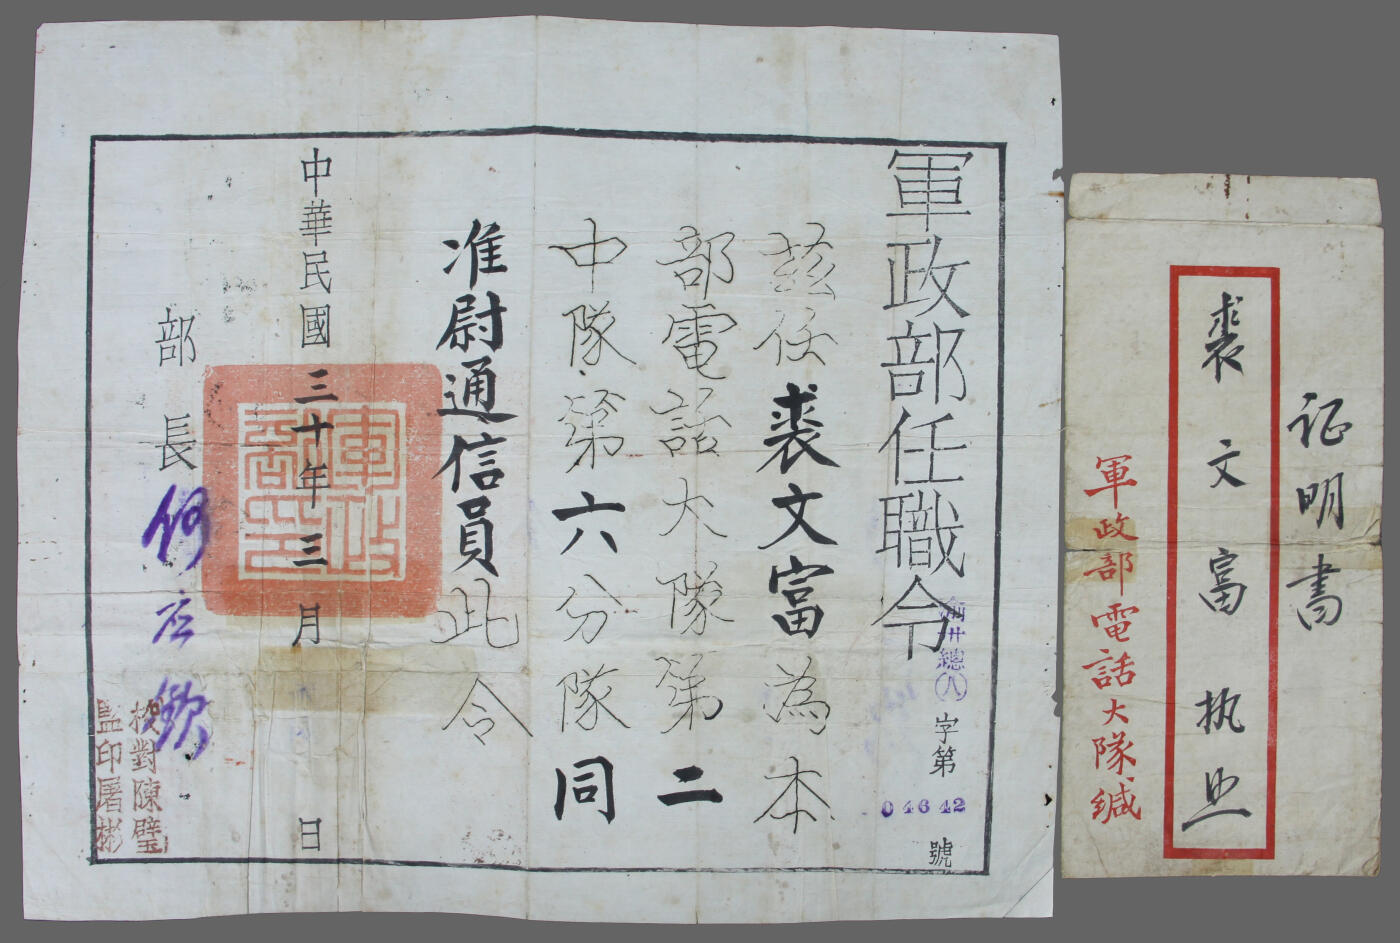 軍政部任職令
銓卅總(八)字第04642號
茲任裘文富為本
部電話大隊第二
中隊第六分隊同
准尉通信員此令
中華民國三十年三月 日
部長何应欽
校對陳璧
監印屠彬
证明書
裘文富执照
軍政部電話大隊缄